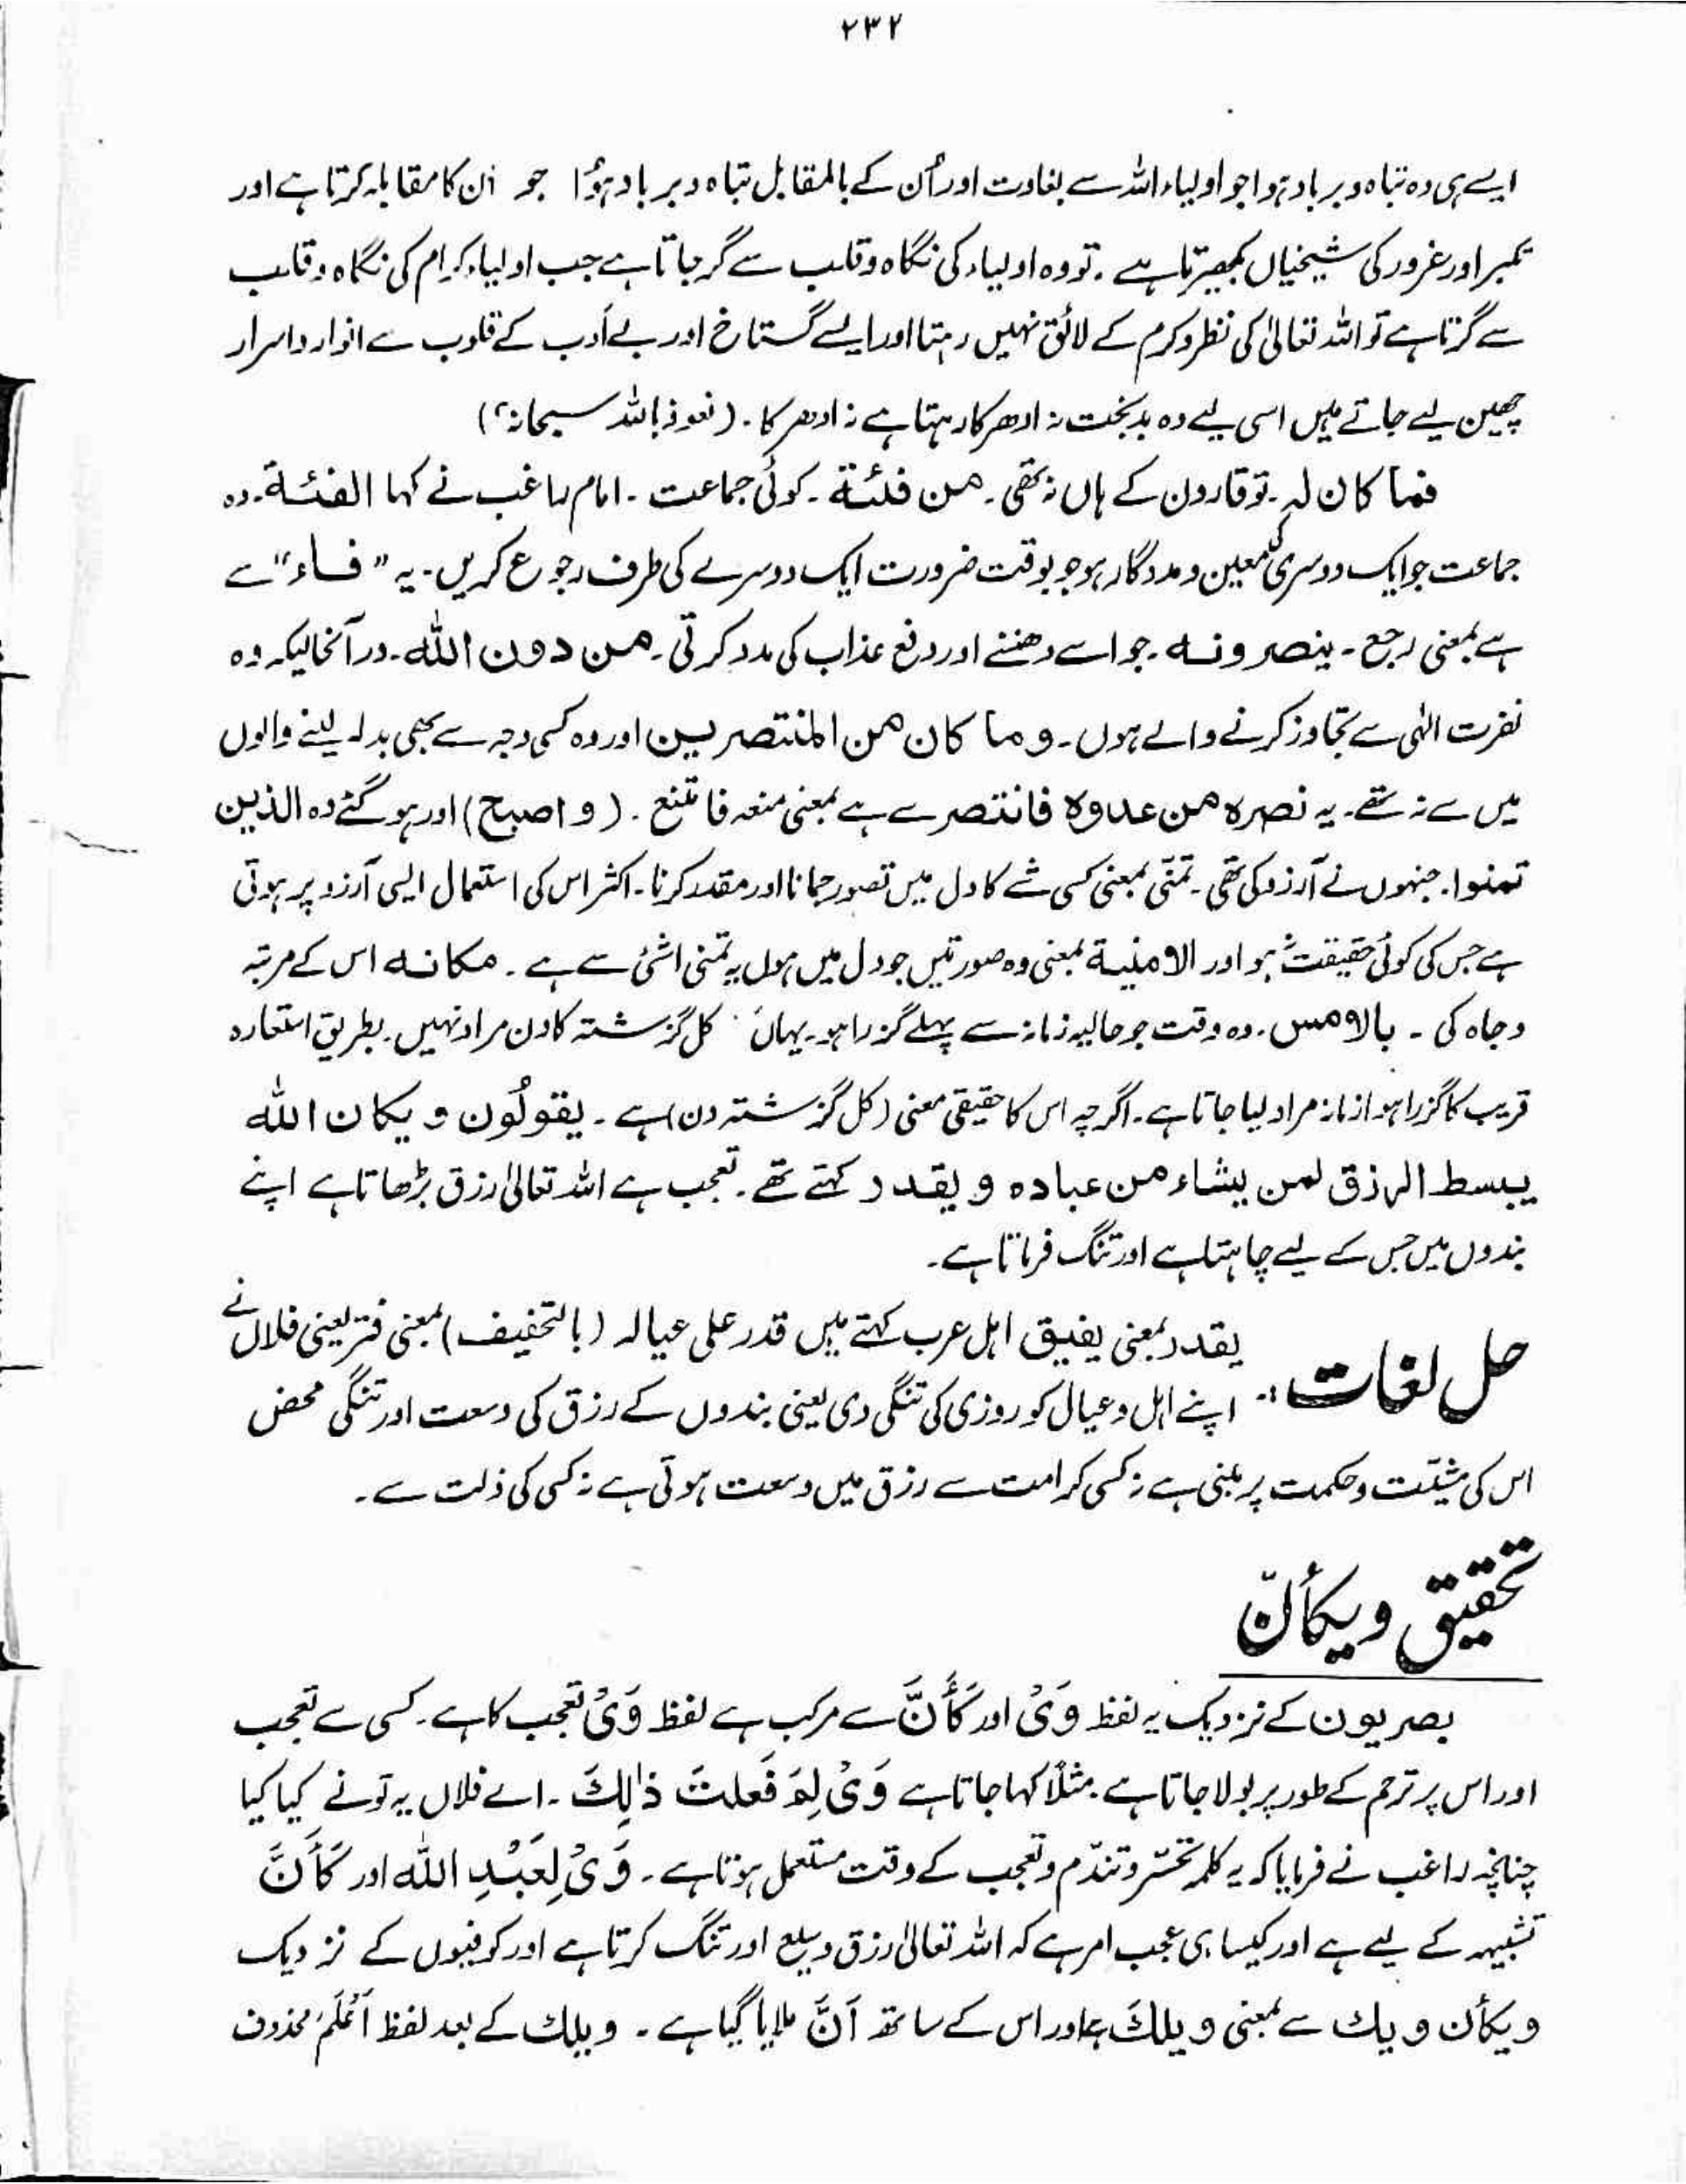 ۲۳۲
ایسے ہی وہ تباہ و برباد ہوا جو اولیاء اللہ سے بغاوت اور اُن کے بالمقابل تباہ و برباد ہؤا جو ان کا مقابلہ کرتا ہے اور
تکبر اور غرور کی شیخیاں بکھیرتا ہے ۔ تو وہ اولیاء کی نگاہ و قلب سے گر جاتا ہے جب اولیاء کرام کی نگاہ و قلب
سے گرتا ہے تو اللہ تعالیٰ کی نظر و کرم کے لائق نہیں رہتا اور ایسے گستاخ اور بے اَدب کے قلوب سے انوار و اسرار
چھین لیے جاتے ہیں اسی لیے وہ بدبخت نہ ادھر کا رہتا ہے نہ ادھر کا ۔ (نعوذ باللہ سبحانہٗ)
فما کان لہ ۔ تو قارون کے ہاں نہ تھی ۔ من فئۃ ۔ کوئی جماعت ۔ امام راغب نے کہا الفئۃ ۔ وہ
جماعت جو ایک دوسری کی معین و مددگار ہو جو بوقت ضرورت ایک دوسرے کی طرف رجوع کریں ۔ یہ ”فاء“ سے
ہے بمعنی رجع ۔ ینصرونہ ۔ جو اسے دھننے اور دفع عذاب کی مدد کرتی ۔ من دون اللہ ۔ درآنحالیکہ وہ
نصرت الٰہی سے تجاوز کرنے والے ہوں ۔ وما کان من المنتصرین اور وہ کسی وجہ سے بھی بدلہ لینے والوں
میں سے نہ تھے ۔ یہ نصرہ من عدوہ فانتصر سے ہے بمعنی منعہ فامتنع ۔ (و اصبح) اور ہو گئے وہ الذین
تمنوا ۔ جنہوں نے آرزو کی تھی ۔ تمنّی بمعنی کسی شے کا دل میں تصور جمانا اور مقدر کرنا ۔ اکثر اس کی استعمال ایسی آرزو پر ہوتی
ہے جس کی کوئی حقیقت نہ ہو اور الامنیۃ بمعنی وہ صورتیں جو دل میں ہوں یہ تمنی اشئ سے ہے ۔ مکانہ اس کے مرتبہ
و جاہ کی ۔ بالامس ۔ وہ وقت جو حالیہ زمانہ سے پہلے گزرا ہو ۔ یہاں کل گزشتہ کا دن مراد نہیں ۔ بطریق استعارہ
قریب کا گزرا ہوا زمانہ مراد لیا جاتا ہے ۔ اگرچہ اس کا حقیقی معنی (کل گزشتہ دن) ہے ۔ یقولُون و یکان اللہ
یبسط الرزق لمن یشاء من عبادہ و یقدر کہتے تھے ۔ تعجب ہے اللہ تعالیٰ رزق بڑھاتا ہے اپنے
بندوں میں جس کے لیے چاہتا ہے اور تنگ فرماتا ہے ۔
حل لغات :- یقدر بمعنی یضیق اہل عرب کہتے ہیں قدر علی عیالہ (بالتخفیف) بمعنی فتر یعنی فلاں نے
اپنے اہل و عیال کو روزی کی تنگی دی یعنی بندوں کے رزق کی وسعت اور تنگی محض
اس کی مشیّت و حکمت پر مبنی ہے نہ کسی کرامت سے رزق میں وسعت ہوتی ہے نہ کسی کی ذلت سے ۔
تحقیق ویکأنّ
بصریون کے نزدیک یہ لفظ وَیْ اور کَأَنَّ سے مرکب ہے لفظ وَیْ تعجب کا ہے ۔ کسی سے تعجب
اور اس پر ترحم کے طور پر بولا جاتا ہے ۔ مثلاً کہا جاتا ہے وَیْ لِمَ فَعلتَ ذٰلِکَ ۔ اے فلاں یہ تو نے کیا کیا
چنانچہ راغب نے فرمایا کہ یہ کلمہ تحسّر و تندّم و تعجب کے وقت مستعمل ہوتا ہے ۔ وَیْ لِعَبْدِ اللہ اور کَأَنَّ
تشبیہہ کے لیے ہے اور کیسا ہی عجب امر ہے کہ اللہ تعالیٰ رزق وسیع اور تنگ کرتا ہے اور کوفیوں کے نزدیک
ویکأن ویك سے بمعنی ویلكَ ہے اور اس کے ساتھ اَنَّ ملایا گیا ہے ۔ ویلك کے بعد لفظ اَعْلَمْ محذوف